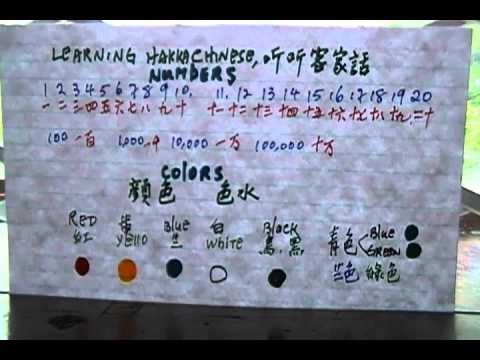 LEARNING HAKKA CHINESE, 听听客家話
NUMBERS
1 2 3 4 5 6 7 8 9 10, 11, 12 13 14 15 16 17 18 19 20
一 二 三 四 五 六 七 八 九 十 十一 十二 十三 十四 十五 十六 十七 十八 十九 二十
100 一百 1,000 一千 10,000 一万 100,000 十万
COLORS
顔色 色水
RED 黄 Blue 白 Black 青色 Blue
紅 yello 兰 White 烏,黑 GREEN
兰色 綠色